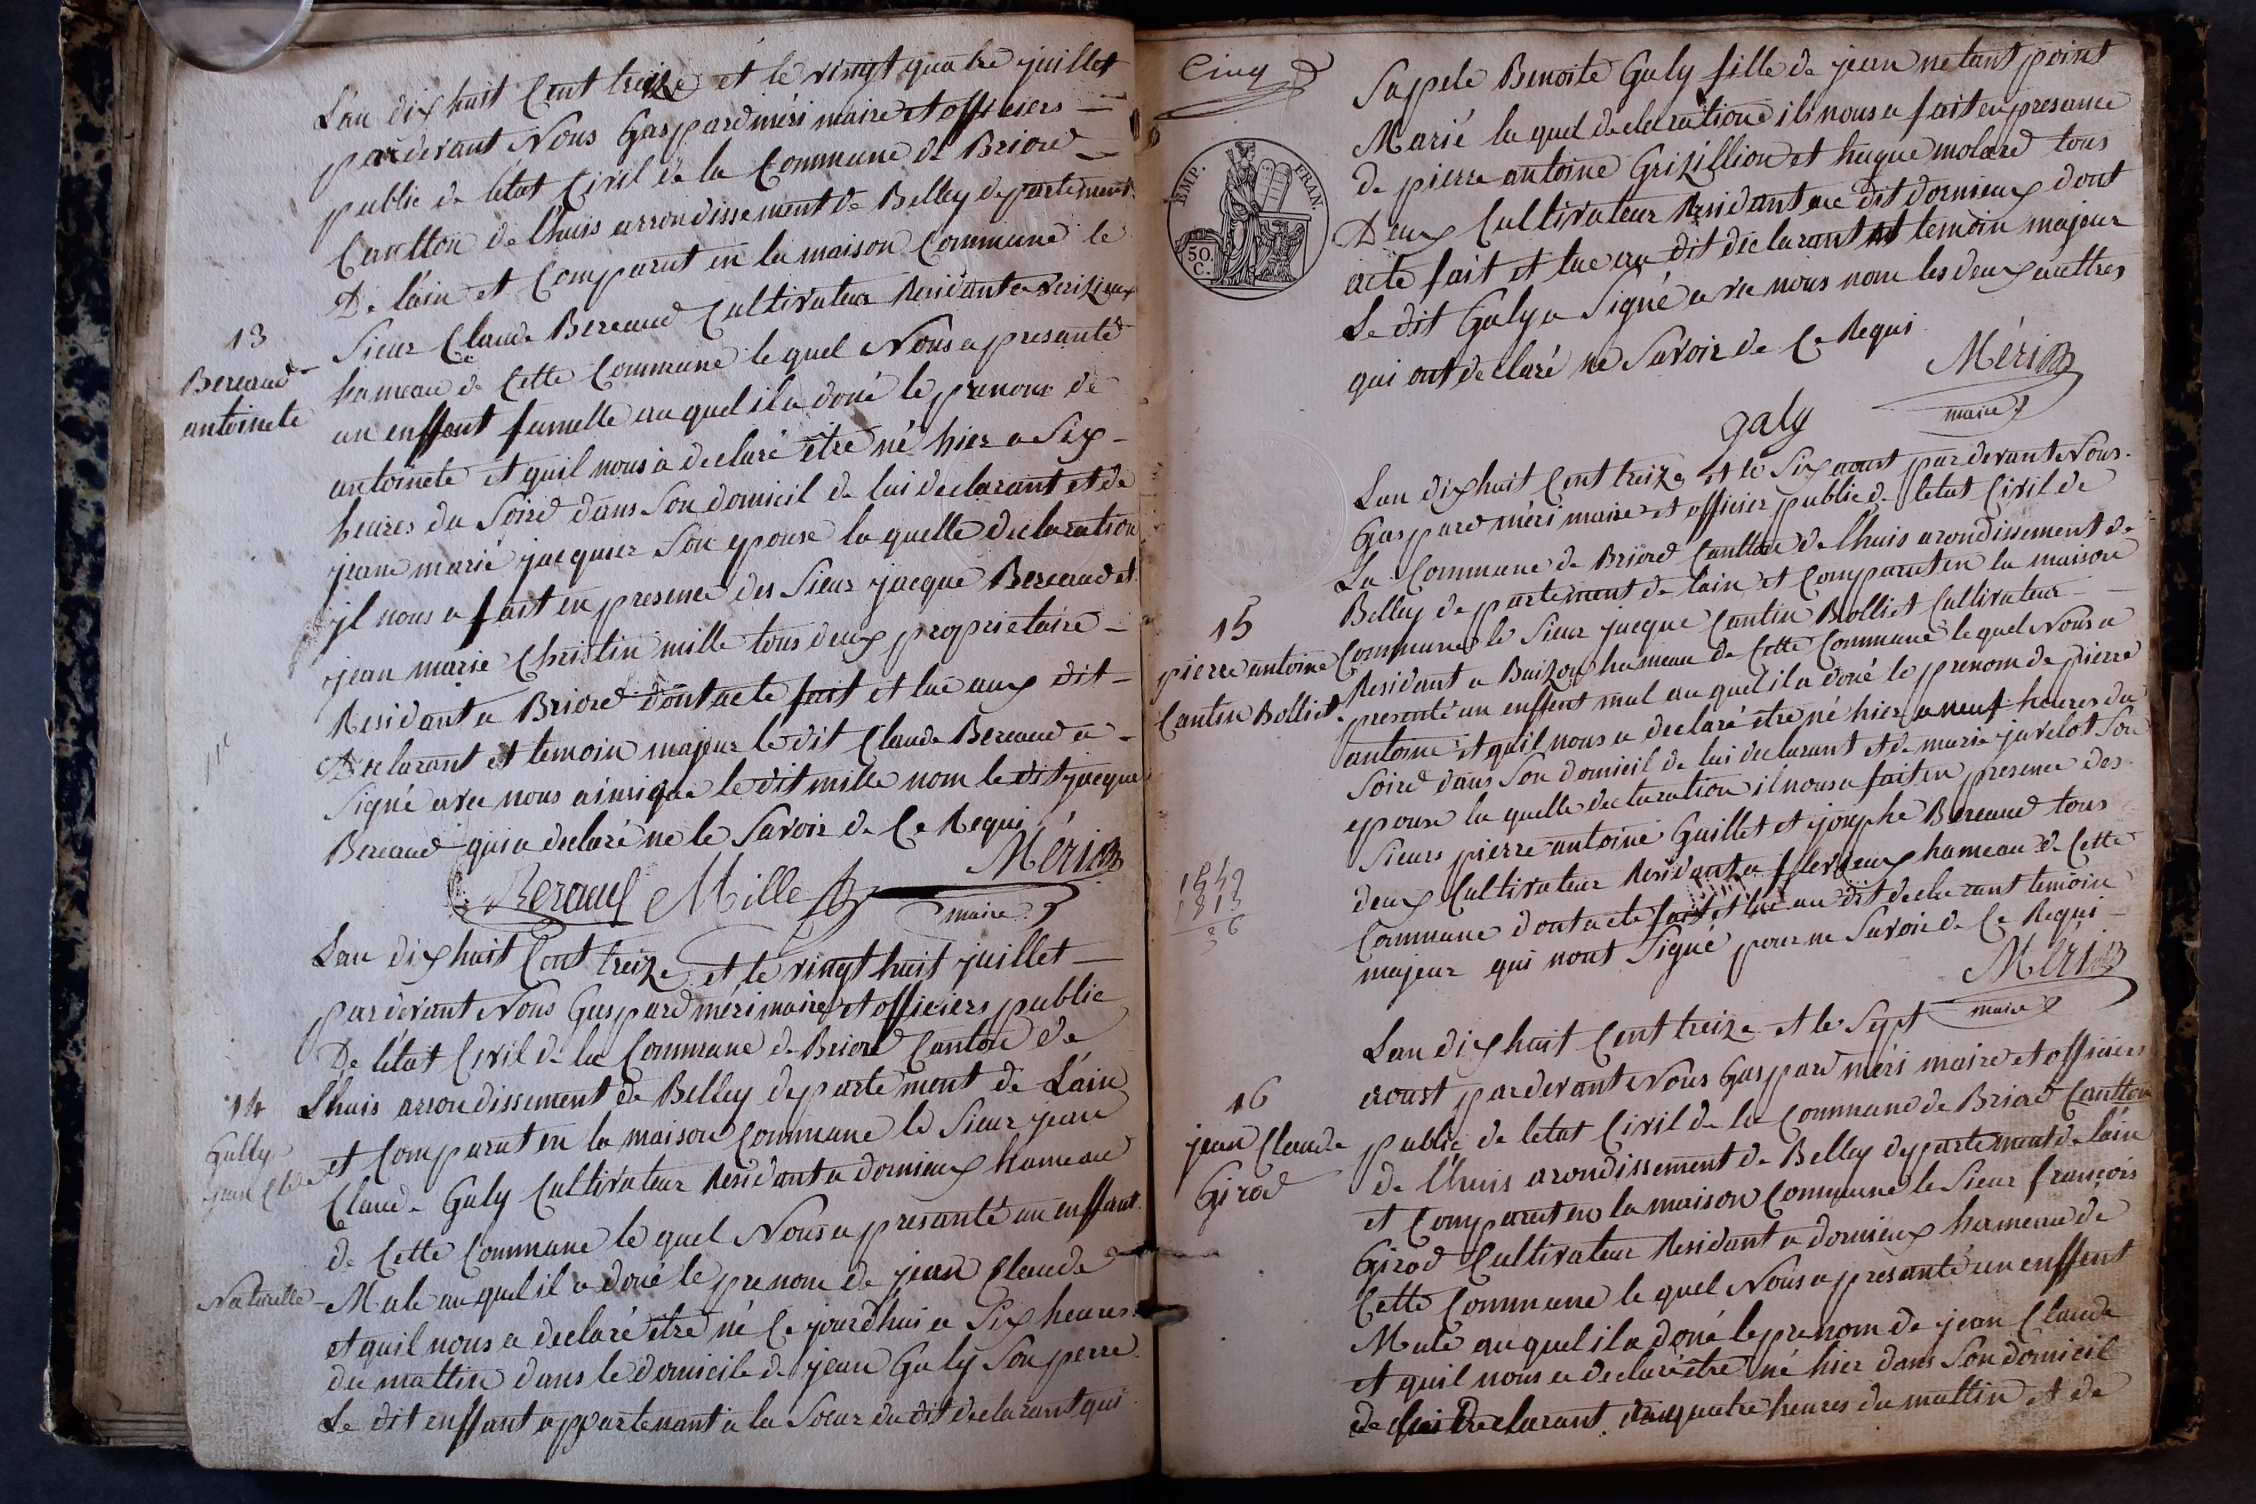 L'an dix huit Cent treize et le vingt quatre juillet
pardevant Nous Gaspard méri maire et officiers
public de létat Civil de la Commune de Briord
Cantton de lhuis arrondissement de Belley departement
De l'ain et Comparut en la maison Commune le
Sieur Claude Bereaud Cultivateur Residant a verizieux
hameau de Cette Commune le quel Nous a presanté
un enffant famelle au quel il a doné le prenom de
antoinete et quil nous a declaré être né hier a Six
heures du Soird dans Son domicil de lui declarant et de
jeane marie jacquier Son epouse la quelle declaration
jl nous a fait en presence des Sieur jacque Bereaud et
jean marie Christin mille tous deux proprietaire
Residant a Briord dont acte fait et lue aux dit
Declarant et temoin majeur le dit Claude Bereaud a
Signé avec nous ainsi que le dit mille nom le dit jacque
Bereaud qui a declaré ne le Savoir de Ce Requi
13
Bereaud
antoinete
Beraud Mille Méri
maire
Lan dix huit Cent treize et le vingt huit juillet
pardevant Nous Gaspard méri maire et officiers public
De létat Civil de la Commune de Briord Canton de
Lhuis arrondissement de Belley departement de L'ain
et Comparut en la maison Commune le Sieur jean
Claude Galy Cultivateur Residant a dornieux hameau
de Cette Commune le quel Nous a presanté un enffant
Male au quel il a doné le prenom de jean Claude
et quil nous a declaré être né Ce jourdhui a Six heures
du mattin dans le domicile de jean Galy Son perre
Le dit enffant appartenant a la Soeur du dit declarant qui
14
Gally
jean Clde
Naturelle
Cinq
EMP. FRAN.
50 C.
Sapele Benoite Galy fille de jean netant point
Marié la quel declaration il nous a fait en presance
de pierre antoine Grizillion et hugue molard tous
Deux Cultivateur Residant au dit dornieux dont
acte fait et lue au dit declarant et temoin majeur
Le dit Galy a Signé avec nous nom les deux auttres
qui ont declaré ne Savoir de Ce Requi
Méri
maire
galy
Lan dix huit Cent treize et le Six aoust pardevant Nous
Gaspard méri maire et officier public de letat Civil de
La Commune de Briord Cantton de lhuis arondissement de
Belley departement de lain et Comparut en la maison
Commune le Sieur jacque Cantin Bolliet Cultivateur
Residant a Buizon hameau de Cette Commune le quel Nous a
presanté un enffent mal au quel il a doné le prenom de pierre
antoine et quil nous a declaré etre né hier a neuf heures du
Soird dans Son domicil de lui declarant et de marie javelot Son
epouse la quelle declaration il nous a fait en presence des
Sieurs pierre antoine Guillet et josephe Bereaud tous
deux Cultivateur Residant a flevieux hameau de Cette
Commune dont acte fait et lue au dit declarant temoin
majeur qui nont Signé pour ne Savoir de Ce Requi
15
pierre antoine
Cantin Bolliet
1849
1813
36
Méri
maire
Lan dix huit Cent treize et le Sept
aoust pardevant Nous Gaspard méri maire et officiers
public de letat Civil de la Commune de Briord Cantton
de lhuis arondissement de Belley departement de lain
et Comparut en la maison Commune le Sieur françois
Girod Cultivateur Residant a dornieux hameau de
Cette Commune le quel Nous a presanté un enffent
Male au quel il a doné le prenom de jean Claude
et quil nous a declaré être né hier dans Son domicil
de lui Declarant quatre heures du mattin et de
16
jean Claude
Girod